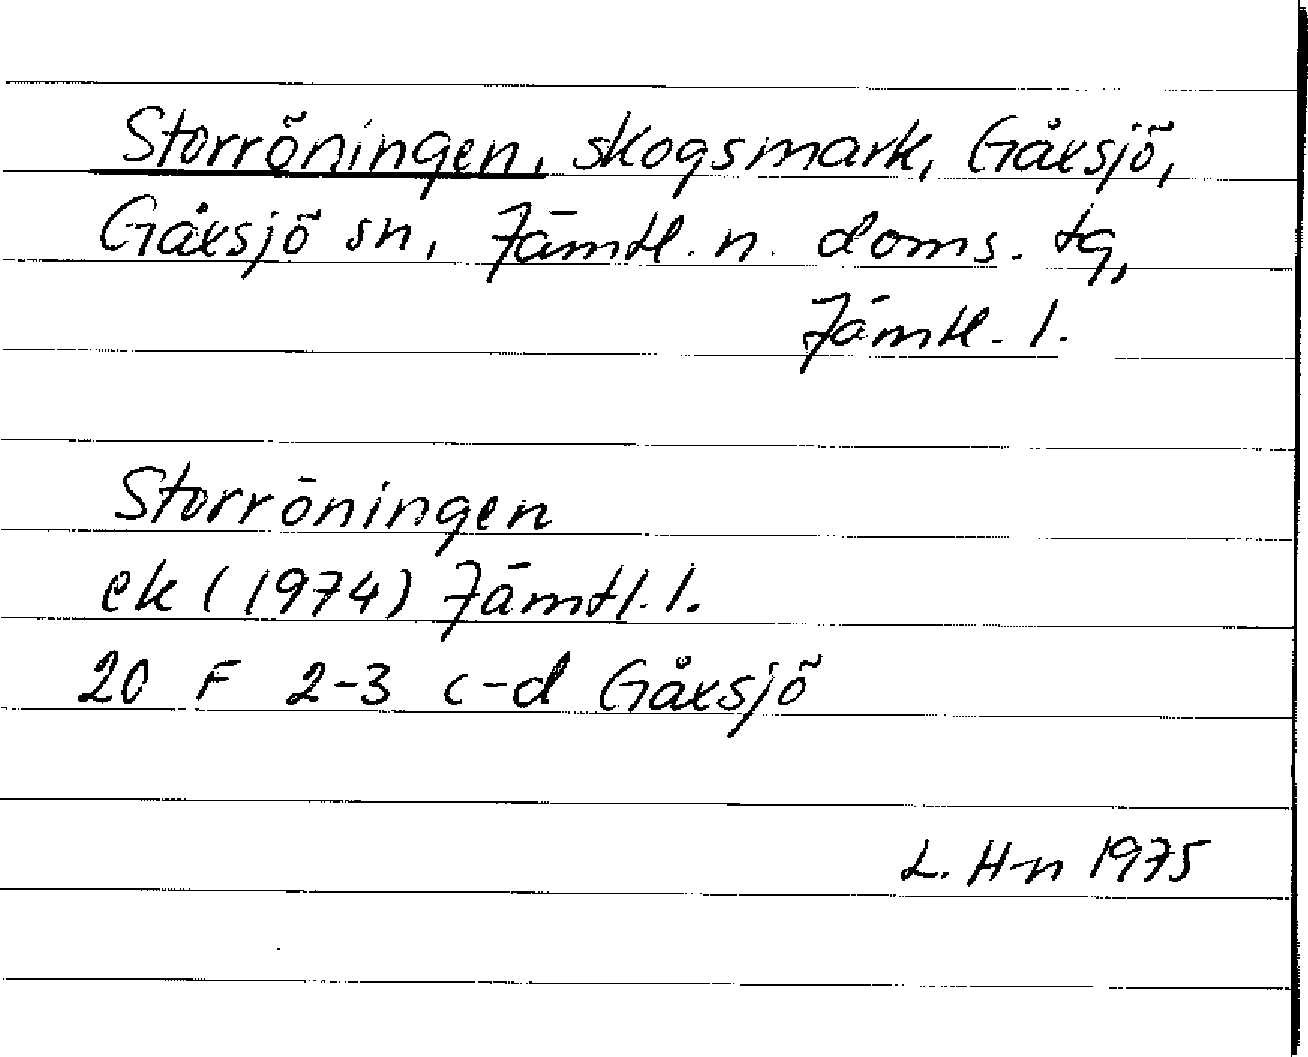 Storröningen, skogsmark, Gåxsjö,
Gåxsjö sn, Jämtl. n. doms. tg,
Jämtl. l.
Storröningen
ek (1974) Jämtl. l.
20 F 2-3 c-d Gåxsjö
L. H-n 1975